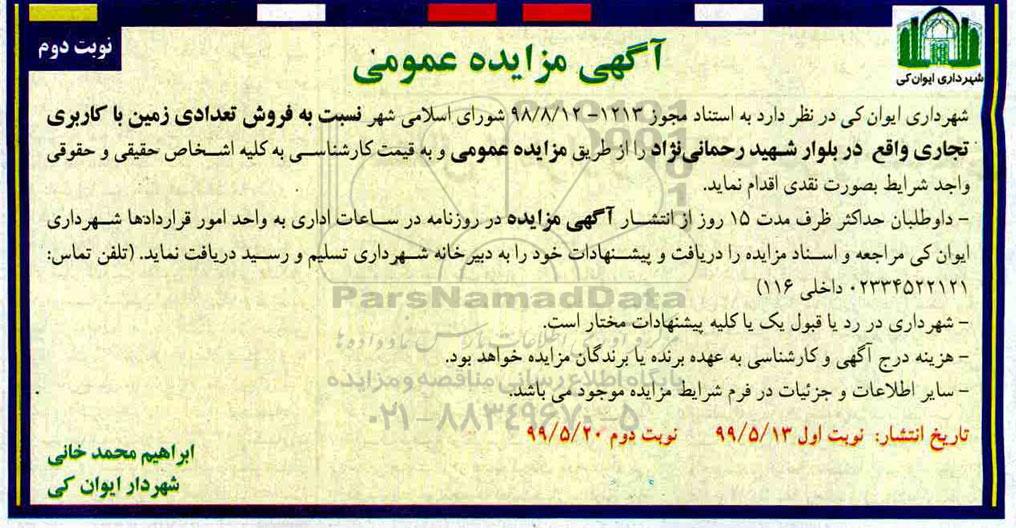 نوبت دوم
شهرداری ایوان کی
آگهی مزایده عمومی
شهرداری ایوان کی در نظر دارد به استناد مجوز ۱۲۱۳-۹۸/۸/۱۲ شورای اسلامی شهر نسبت به فروش تعدادی زمین با کاربری
تجاری واقع در بلوار شهید رحمانی‌نژاد را از طریق مزایده عمومی و به قیمت کارشناسی به کلیه اشخاص حقیقی و حقوقی
واجد شرایط بصورت نقدی اقدام نماید.
- داوطلبان حداکثر ظرف مدت ۱۵ روز از انتشار آگهی مزایده در روزنامه در ساعات اداری به واحد امور قراردادها شهرداری
ایوان کی مراجعه و اسناد مزایده را دریافت و پیشنهادات خود را به دبیرخانه شهرداری تسلیم و رسید دریافت نماید. (تلفن تماس:
۰۲۳۳۴۵۲۲۱۲۱ داخلی ۱۱۶)
ParsNamadData
- شهرداری در رد یا قبول یک یا کلیه پیشنهادات مختار است.
- هزینه درج آگهی و کارشناسی به عهده برنده یا برندگان مزایده خواهد بود.
پایگاه اطلاع رسانی مناقصه و مزایده
- سایر اطلاعات و جزئیات در فرم شرایط مزایده موجود می باشد.
۰۲۱-۸۸۳۴۹۶۷۰-۵
تاریخ انتشار: نوبت اول ۹۹/۵/۱۳ نوبت دوم ۹۹/۵/۲۰
ابراهیم محمد خانی
شهردار ایوان کی